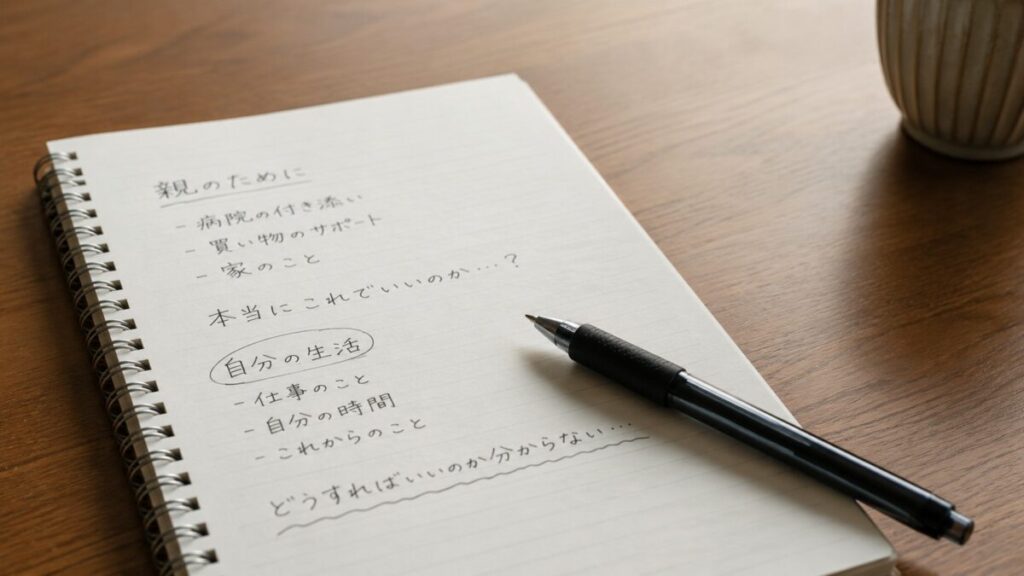 親のために
- 病院の付き添い
- 買い物のサポート
- 家のこと
本当にこれでいいのか…?
自分の生活
- 仕事のこと
- 自分の時間
- これからのこと
どうすればいいのか分からない…